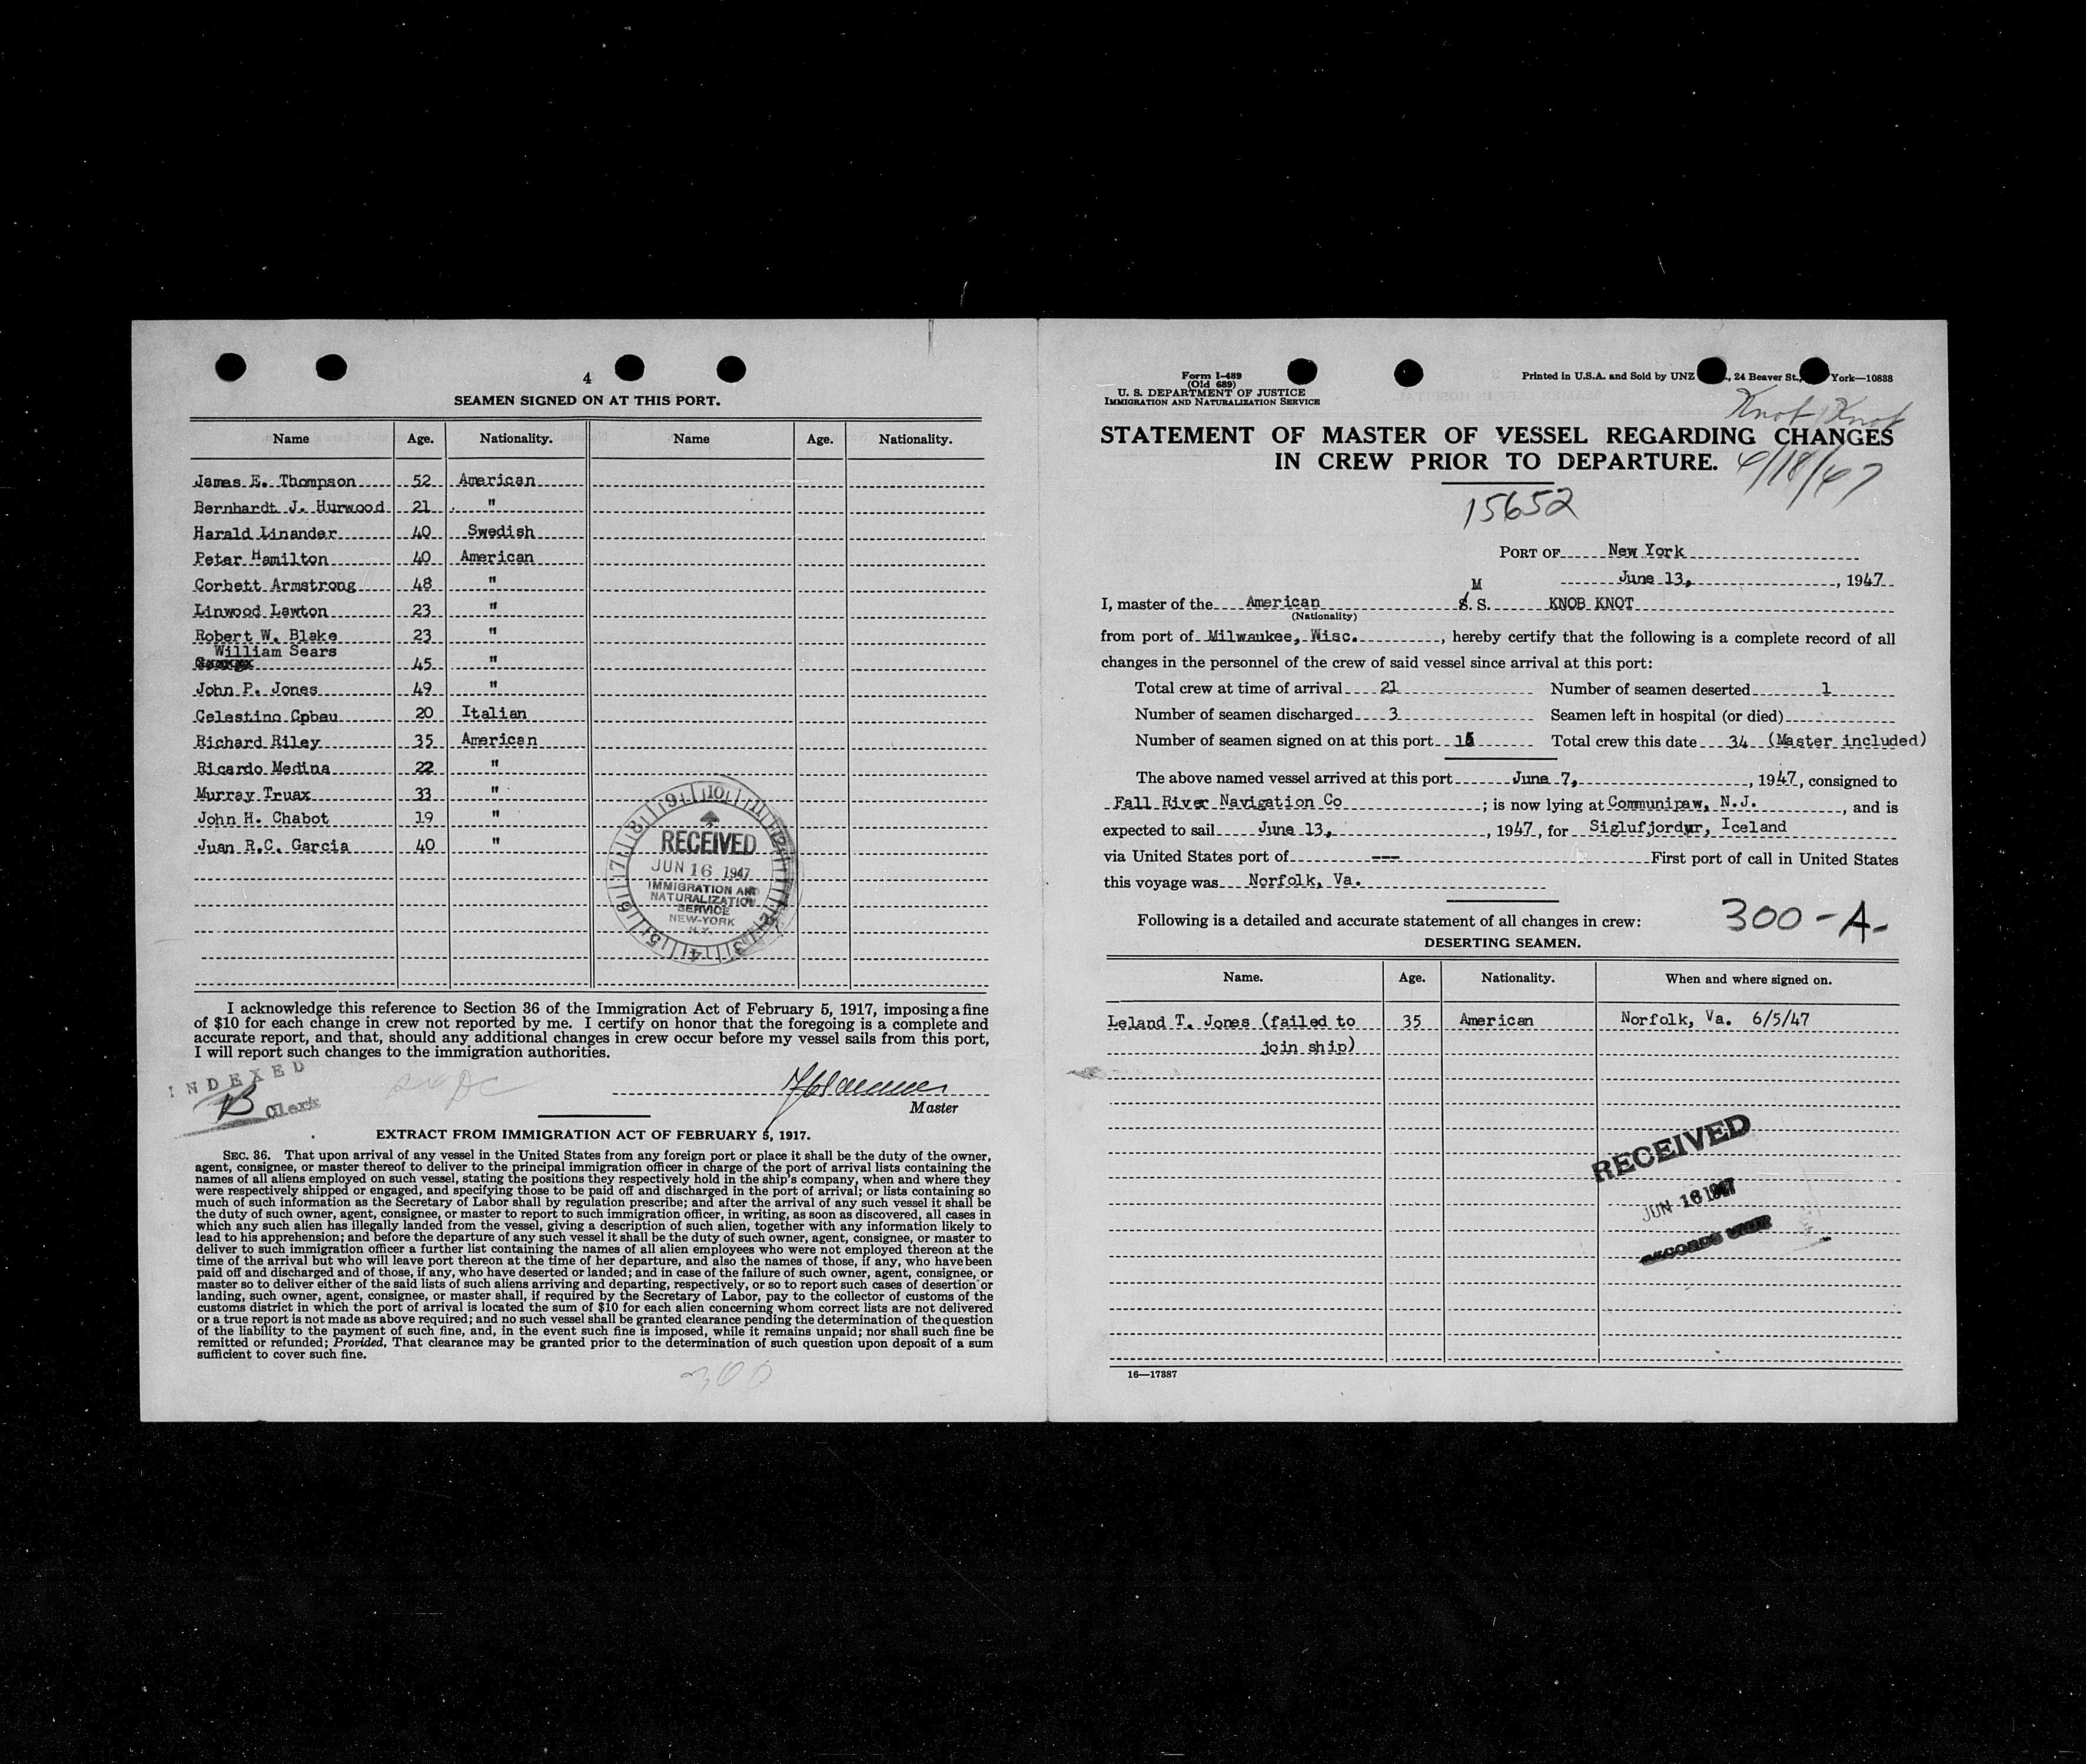 4
SEAMEN SIGNED ON AT THIS PORT.
Name Age. Nationality. Name Age. Nationality.
James E. Thompson 52 American
Bernhardt J. Hurwood 21 "
Harald Linander 40 Swedish
Peter Hamilton 40 American
Corbett Armstrong 48 "
Linwood Lawton 23 "
Robert W. Blake 23 "
William Sears
45 "
John P. Jones 49 "
Celestino Cpbau 20 Italian
Richard Riley 35 American
Ricardo Medina 22 "
Murray Truax 33 "
John H. Chabot 19 "
Juan R.C. Garcia 40 "
RECEIVED
JUN 16 1947
IMMIGRATION AND
NATURALIZATION
SERVICE
NEW-YORK
N.Y.
I acknowledge this reference to Section 36 of the Immigration Act of February 5, 1917, imposing a fine
of $10 for each change in crew not reported by me. I certify on honor that the foregoing is a complete and
accurate report, and that, should any additional changes in crew occur before my vessel sails from this port,
I will report such changes to the immigration authorities.
INDEXED
B Clerk
Master
EXTRACT FROM IMMIGRATION ACT OF FEBRUARY 5, 1917.
SEC. 36. That upon arrival of any vessel in the United States from any foreign port or place it shall be the duty of the owner,
agent, consignee, or master thereof to deliver to the principal immigration officer in charge of the port of arrival lists containing the
names of all aliens employed on such vessel, stating the positions they respectively hold in the ship's company, when and where they
were respectively shipped or engaged, and specifying those to be paid off and discharged in the port of arrival; or lists containing so
much of such information as the Secretary of Labor shall by regulation prescribe; and after the arrival of any such vessel it shall be
the duty of such owner, agent, consignee, or master to report to such immigration officer, in writing, as soon as discovered, all cases in
which any such alien has illegally landed from the vessel, giving a description of such alien, together with any information likely to
lead to his apprehension; and before the departure of any such vessel it shall be the duty of such owner, agent, consignee, or master to
deliver to such immigration officer a further list containing the names of all alien employees who were not employed thereon at the
time of the arrival but who will leave port thereon at the time of her departure, and also the names of those, if any, who have been
paid off and discharged and of those, if any, who have deserted or landed; and in case of the failure of such owner, agent, consignee, or
master so to deliver either of the said lists of such aliens arriving and departing, respectively, or so to report such cases of desertion or
landing, such owner, agent, consignee, or master shall, if required by the Secretary of Labor, pay to the collector of customs of the
customs district in which the port of arrival is located the sum of $10 for each alien concerning whom correct lists are not delivered
or a true report is not made as above required; and no such vessel shall be granted clearance pending the determination of the question
of the liability to the payment of such fine, and, in the event such fine is imposed, while it remains unpaid; nor shall such fine be
remitted or refunded; Provided, That clearance may be granted prior to the determination of such question upon deposit of a sum
sufficient to cover such fine.
300
Form I-489
(Old 689)
U. S. DEPARTMENT OF JUSTICE
IMMIGRATION AND NATURALIZATION SERVICE
Printed in U.S.A. and Sold by UNZ , 24 Beaver St., York—10838
Knot Knot
STATEMENT OF MASTER OF VESSEL REGARDING CHANGES
IN CREW PRIOR TO DEPARTURE.
6/18/47
15652
PORT OF New York
June 13, , 1947
M
I, master of the American S. S. KNOB KNOT
(Nationality)
from port of Milwaukee, Wisc. , hereby certify that the following is a complete record of all
changes in the personnel of the crew of said vessel since arrival at this port:
Total crew at time of arrival 21 Number of seamen deserted 1
Number of seamen discharged 3 Seamen left in hospital (or died)
Number of seamen signed on at this port 15 Total crew this date 34 (Master included)
The above named vessel arrived at this port June 7, , 1947, consigned to
Fall River Navigation Co ; is now lying at Communipaw, N.J. , and is
expected to sail June 13, , 1947, for Siglufjordur, Iceland
via United States port of --- First port of call in United States
this voyage was Norfolk, Va.
Following is a detailed and accurate statement of all changes in crew:
300-A-
DESERTING SEAMEN.
Name. Age. Nationality. When and where signed on.
Leland T. Jones (failed to 35 American Norfolk, Va. 6/5/47
join ship)
RECEIVED
JUN 16 1947
RECORDS
16—17887